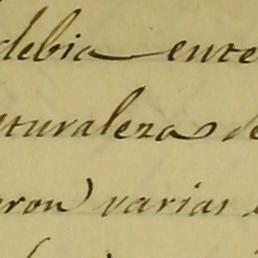 debia ente
aturaleza de
eron varias